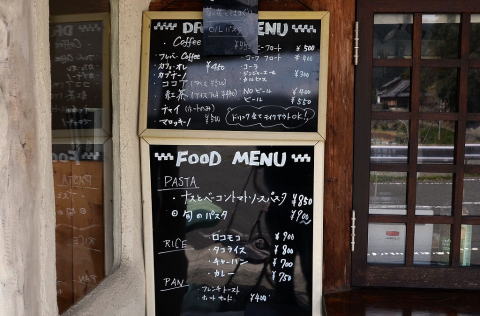 DR MENU
OILパスタ
・Coffee
コーヒーフロート ¥500
・フレーバーCoffee
・コーラフロート
・カフェ・オレ ¥450
・コーラ
・カプチーノ
・ジンジャーエール ¥300
・ココア
・カルピス
・紅茶
・NOビール ¥400
・チャイ (ホットのみ)
・ビール ¥550
・マロッキーノ ¥500
ドリンク全てテイクアウトOK!
FOOD MENU
PASTA
・ナスとベーコントマトソースパスタ ¥850
◎旬のパスタ ¥900
RICE
・ロコモコ ¥900
・タコライス ¥800
・チャーハン ¥700
・カレー ¥750
PAN
・フレンチトースト
・ホットドッグ ¥400